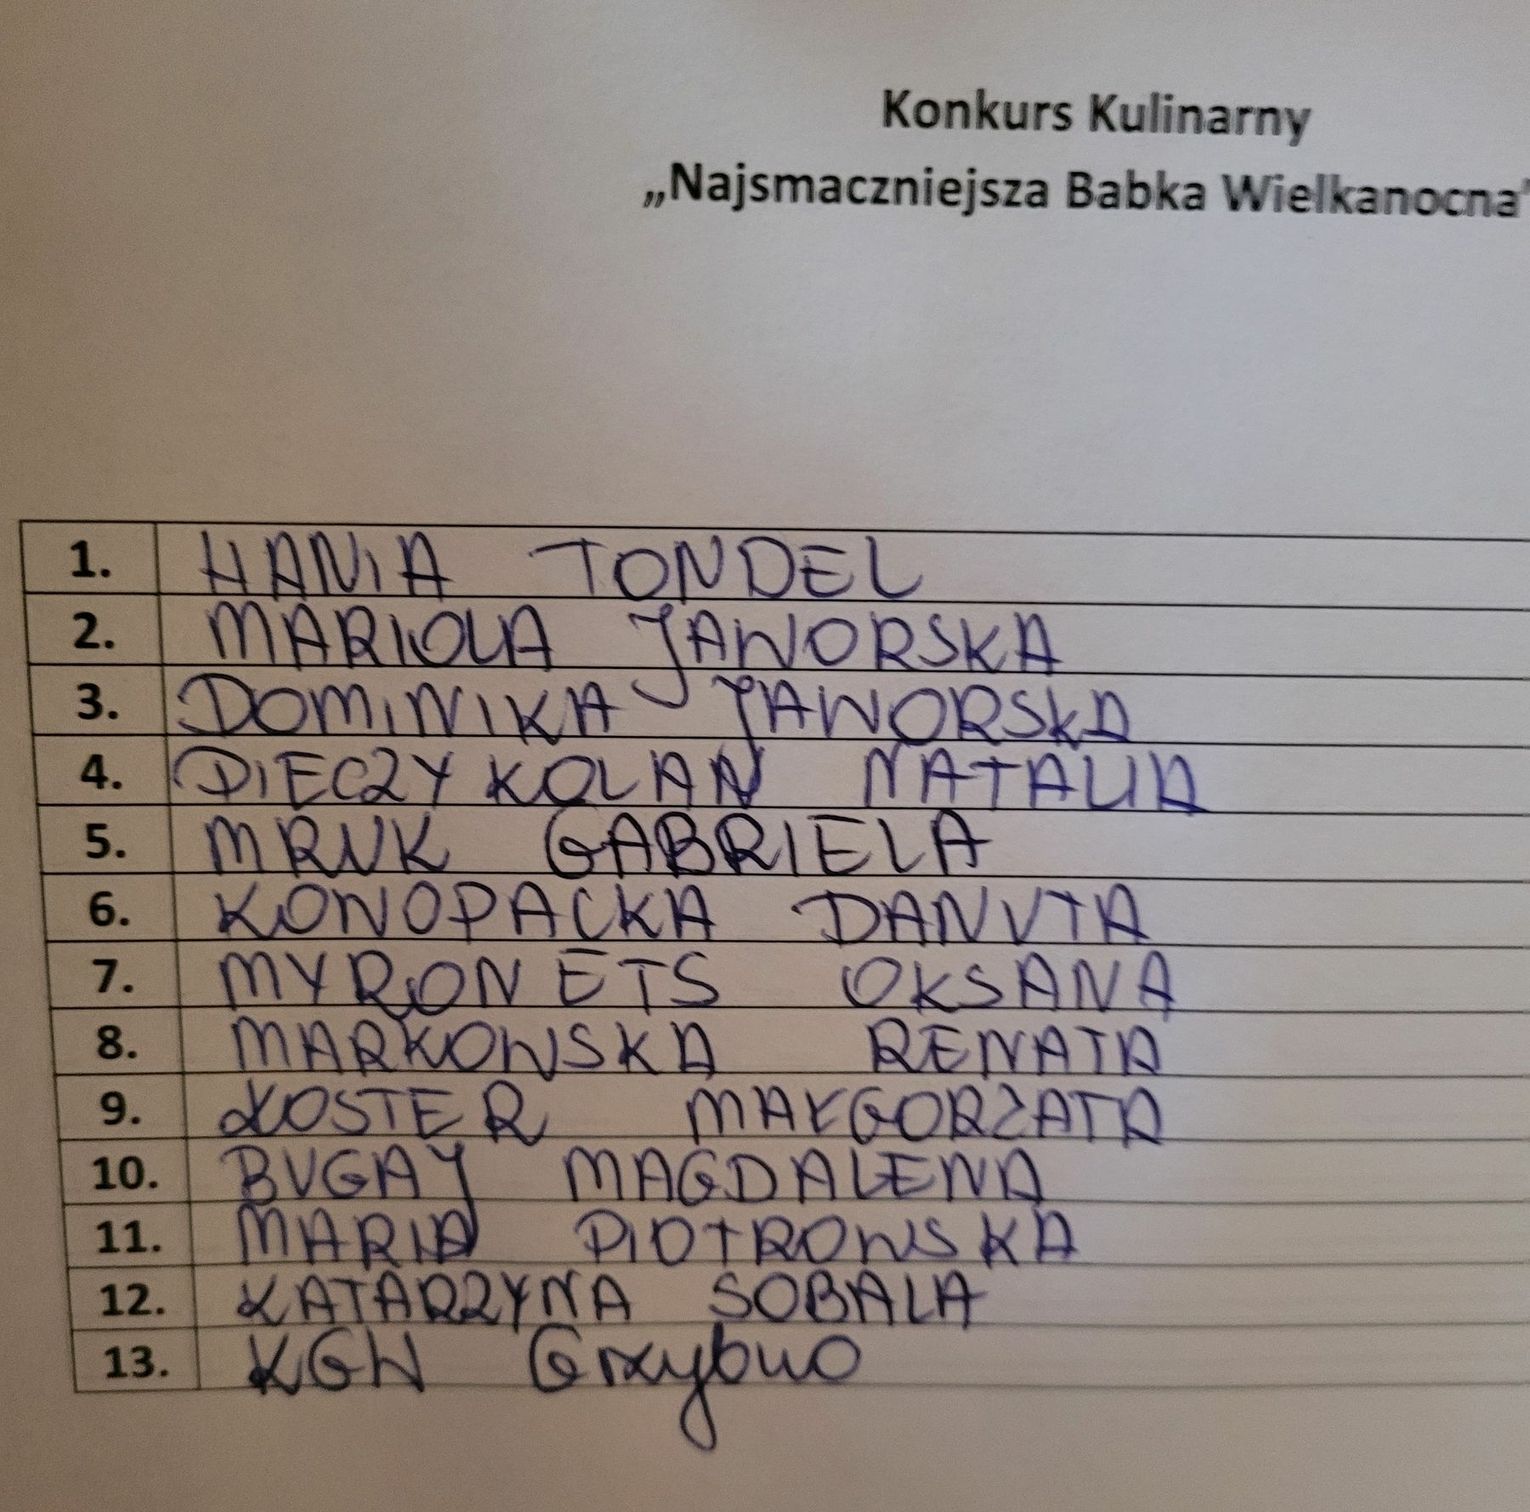 Konkurs Kulinarny
„Najsmaczniejsza Babka Wielkanocna"
1. HANIA TONDEL
2. MARIOLA JAWORSKA
3. DOMINIKA JAWORSKA
4. DIECZYKOLAN NATALIA
5. MRUK GABRIELA
6. KONOPACKA DANUTA
7. MYRONETS OKSANA
8. MARKOWSKA RENATA
9. KOSTER MAŁGORZATA
10. BUGAJ MAGDALENA
11. MARIA PIOTROWSKA
12. KATARZYNA SOBALA
13. KGW Grzybno